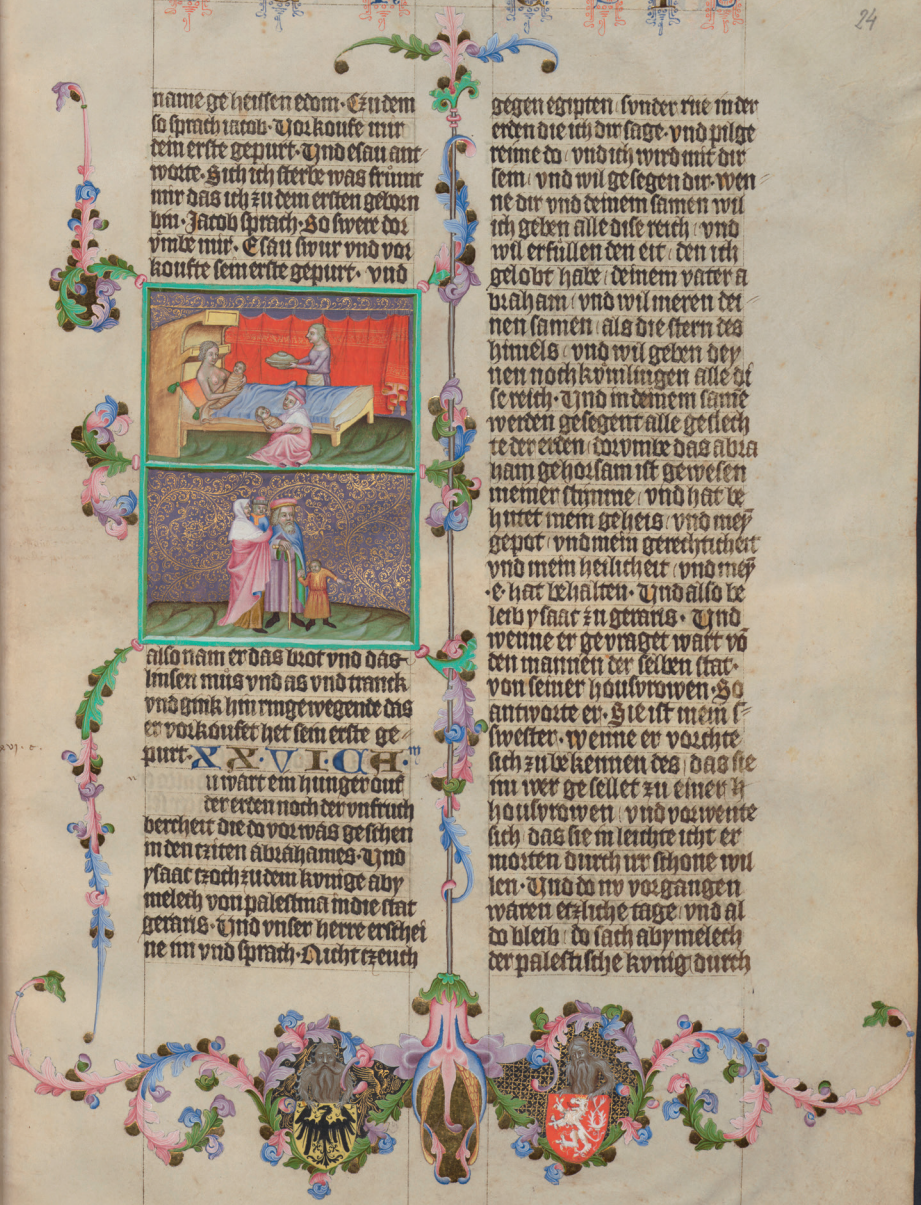 24
name geheissen edom · Czu dem
so sprach iacob · Vorkoufe mir
dein erste gepurt · Vnd esau ant
worte · Sich ich sterbe was frumt
mir das ich zu dem ersten geborn
bin · Jacob sprach · So swere dor
vmbe mir · Esau swur vnd vor
koufte sein erste gepurt · vnd
also nam er das brot vnd das
linsen mus vnd as vnd tranck
vnd gink hin ringewegende das
er vorkoufet het sein erste ge-
purt · XXVI · CA · m
u wart ein hunger ouf
der erden noch der vnfruch
bercheit die do vor was geschen
in den cziten abrahames · Vnd
ysaac czoch zu dem kvnige aby
melech von palestina in die stat
geraris · Vnd vnser herre erschei
ne im vnd sprach · Nicht czeuch
gegen egipten sunder rue in der
erden die ich dir sage · vnd pilge
reime do vnd ich wird mit dir
sein vnd wil gesegen dir · wen
ne dir vnd deinem samen wil
ich geben alle dise reich vnd
wil erfullen den eit den ich
gelobt habe deinem vater a
braham vnd wil meren dei
nen samen als die stern des
himels vnd wil geben dey
nen nochkvmlingen alle di
se reich · Vnd in deinem same
werden gesegent alle geslech
te der erden dorvmbe das abra
ham gehorsam ist gewesen
meiner stimme vnd hat be
hutet mein geheis vnd mey̅
gepot vnd mein gerechticheit
vnd mein heilicheit vnd mey̅
· e · hat behalten · Vnd also be
leib ysaac zu geraris · Vnd
wenne er gevraget wart vo̅
den mannen der selben stat ·
von seiner housvrowen · So
antworte er · Sie ist mein s-
swester · wenne er vorchte
sich zu bekennen des das sie
im wer gesellet zu einer h
housvrowen vnd vorwente
sich das sie in leichte icht er
morten durch ir schone wil
len · Vnd do nv vorgangen
waren etzliche tage vnd al
do bleib do sach abymelech
der palestische kvnig durch